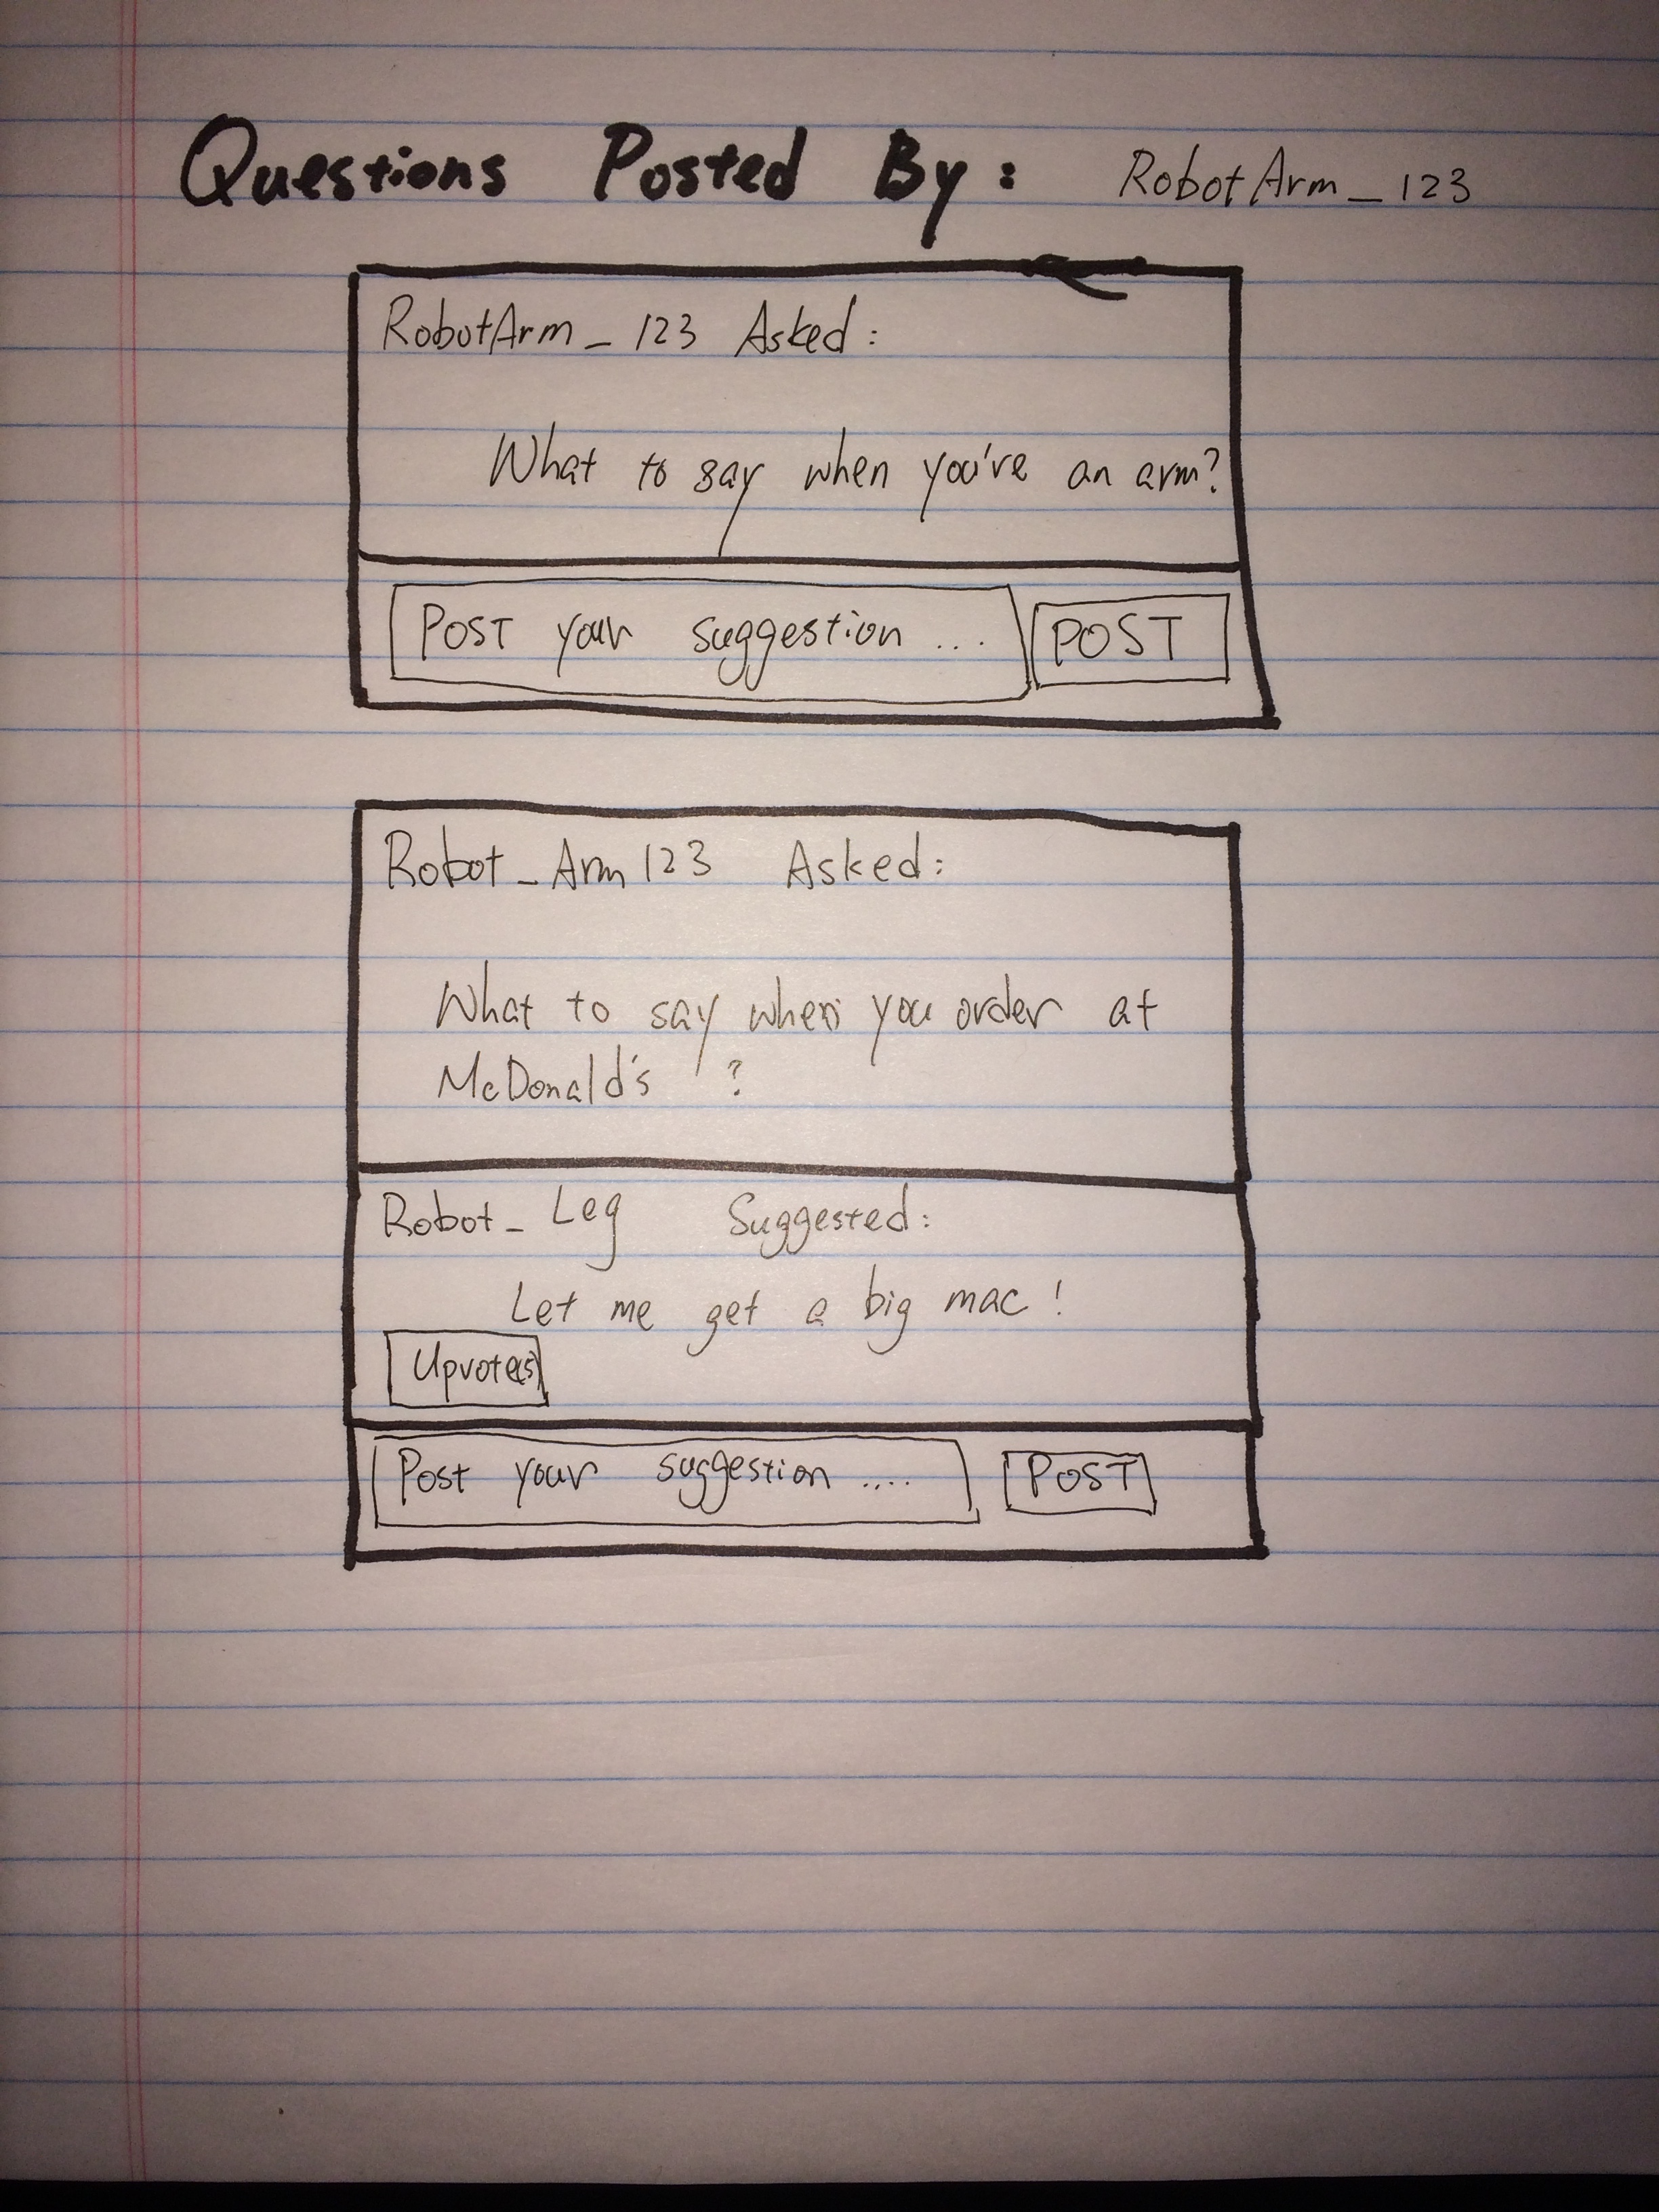 Questions Posted By: RobotArm_123
RobotArm_123 Asked:
What to say when you've an arm?
POST your suggestion ...
POST
Robot_Arm123 Asked:
What to say when you order at
McDonald's ?
Robot_Leg Suggested:
Let me get a big mac!
Upvote(s)
Post your suggestion ....
POST